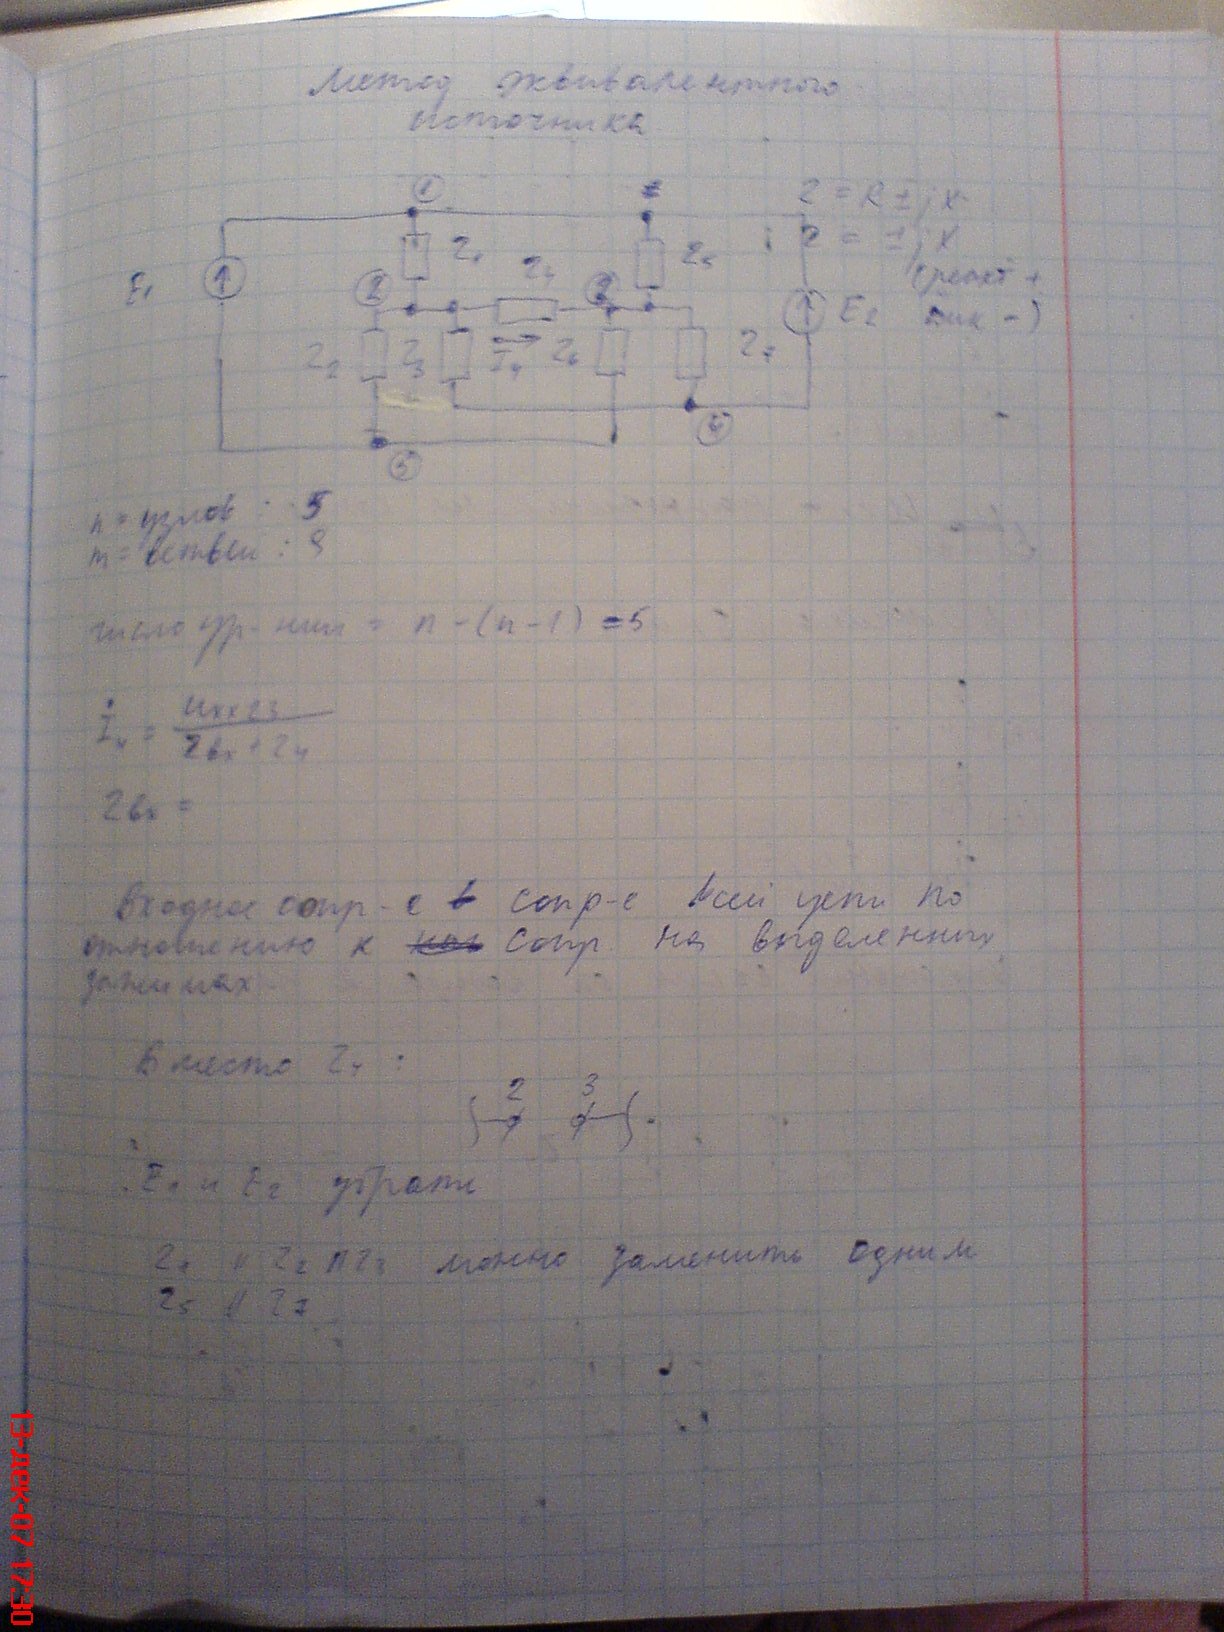 Метод эквивалентного
источника
1
Z = R ± jX
Z = ± jX
E₁
Z₁
Z₄
Z₅
2
3
E₂
Z₂
Z₃
I₄
Z₆
Z₇
4
5
n = узлов : 5
m = ветвей : 9
число ур-ний = n - (n-1) = 5
İ₄ = Uхх23
Zвх + Z₄
Zвх =
Входное сопр-е сопр-е всей цепи по
отношению к сопр. на выделенных
зажимах
Вместо Z₄ :
2 3
E₁ и E₂ убрать
Z₁ || Z₂ || Z₃ можно заменить одним
Z₅ || Z₇
13-дек-07 17:30